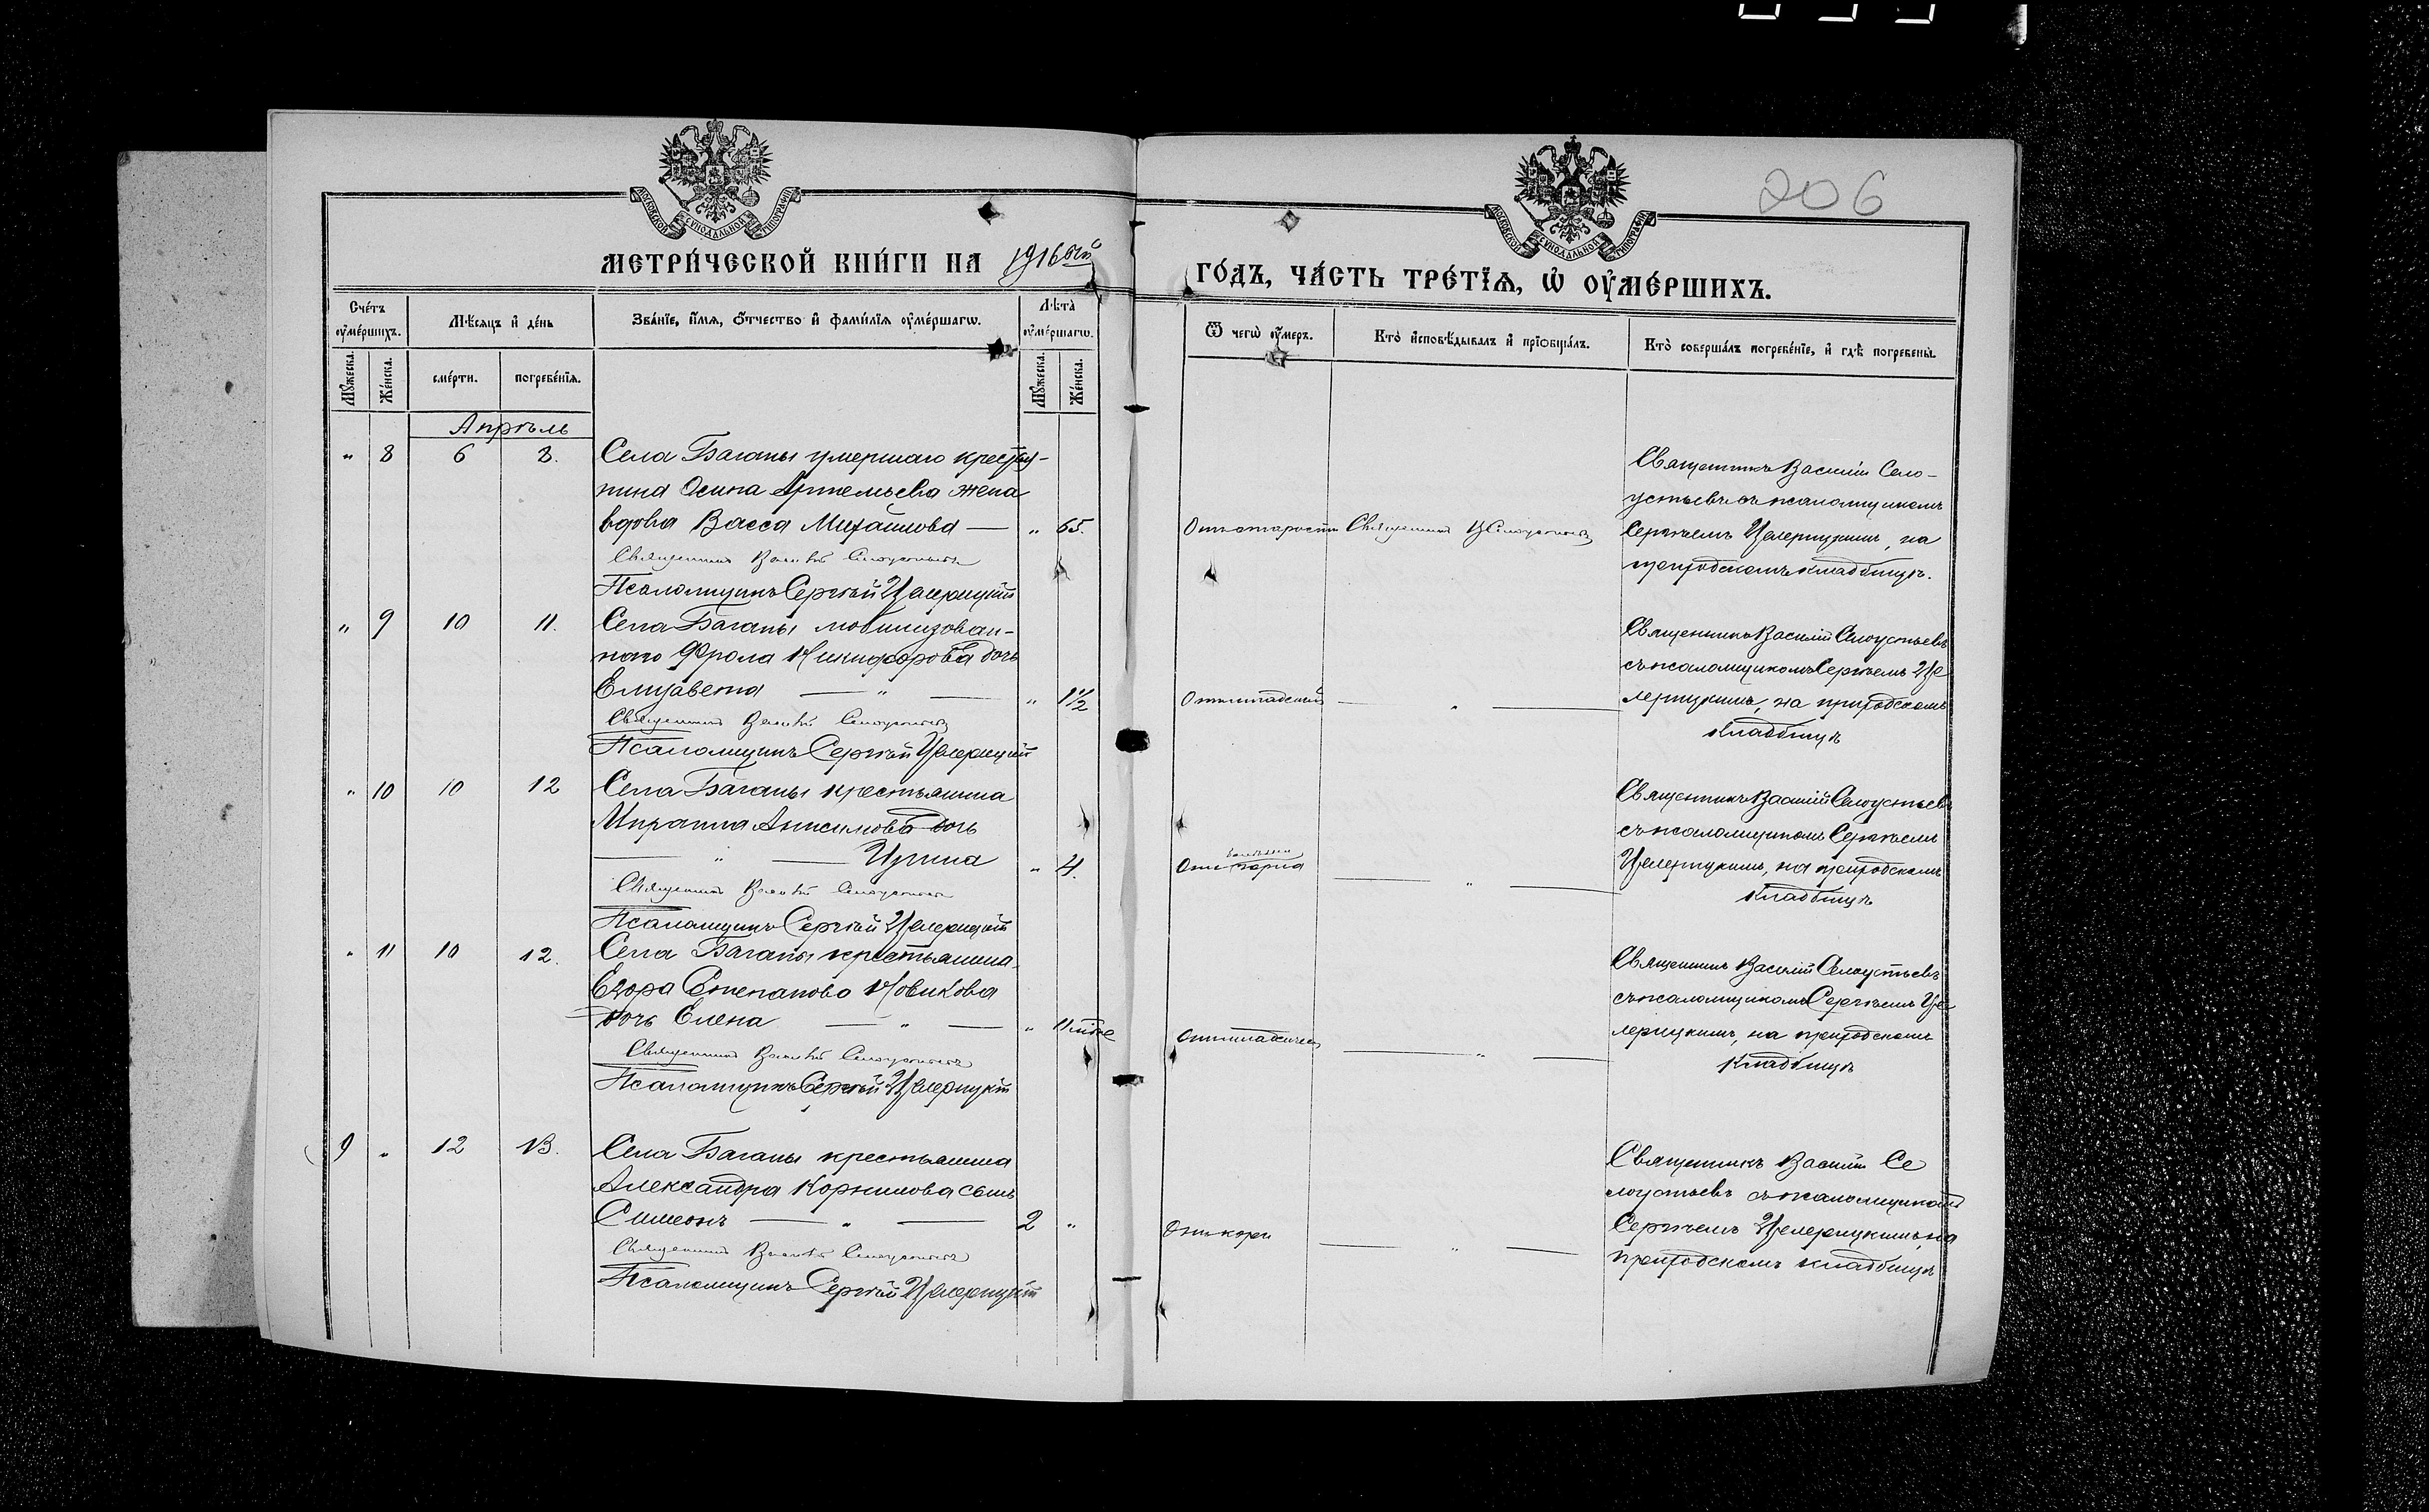 206
МОСКОВСКОЙ СѴНОДАЛЬНОЙ ТИПОГРАФІИ
МОСКОВСКОЙ СѴНОДАЛЬНОЙ ТИПОГРАФІИ
МЕТРИ́ЧЕСКОЙ КНИ́ГИ НА 1916 ый ГО́ДЪ, ЧА́СТЬ ТРЕ́ТІѦ, Ѡ҆ ОУ҆МЕ́РШИХЪ.
Сче́тъ оу҆ме́ршихъ.
Мѣ́сѧцъ и҆ де́нь
Зва́нїе, и҆́мѧ, ѻ҆́тчество и҆ фами́лїѧ оу҆ме́ршагѡ.
Лѣ́та оу҆ме́ршагѡ.
Ѿ чегѡ̀ оу҆́меръ.
Кто̀ и҆сповѣ́дывалъ и҆ прїѡбща́лъ.
Кто̀ соверша́лъ погребе́нїе, и҆ гдѣ̀ погребены̀.
Мꙋ́жеска.
Же́нска.
сме́рти.
погребе́нїѧ.
Мꙋ́жеска.
Же́нска.
Апрѣль
" 8 6 8. Села Баганы умершаго крестья-
нина Осипа Артемьева жена
вдова Васса Михайлова — " 65. Отъ старости Священникъ В Селоустьевъ
Священникъ Василій Селоустьевъ
Псаломщикъ Сергѣй Целерицкій
Священникъ Василій Село-
устьевъ съ псаломщикомъ
Сергѣемъ Целерицкимъ, на
приходскомъ кладбищѣ.
" 9 10 11. Села Баганы мобилизован-
наго Фрола Никифорова дочь
Елизавета — " — " 1 1/2 — " —
Священникъ Василій Селоустьевъ
Псаломщикъ Сергѣй Целерицкій
Священникъ Василій Селоустьевъ
съ псаломщикомъ Сергѣемъ Це
лерицкимъ, на приходскомъ
кладбищѣ
" 10 10 12 Села Баганы крестьянина
Анисимова дочь
— " — Ирина " 4. Отъ горла — " —
Священникъ Василій Селоустьевъ
Псаломщикъ Сергѣй Целерицкій
Священникъ Василій Селоустьевъ
съ псаломщикомъ Сергѣемъ
Целерицкимъ, на приходскомъ
кладбищѣ
" 11 10 12. Села Баганы крестьянина
Егора Степанова Новикова
дочь Елена — " — " 11 мѣс — " —
Священникъ Василій Селоустьевъ
Псаломщикъ Сергѣй Целерицкій
Священникъ Василій Селоустьевъ
съ псаломщикомъ Сергѣемъ Це
лерицкимъ, на приходскомъ
кладбищѣ
9 " 12 13. Села Баганы крестьянина
Александра Корнилова сынъ
Симеонъ — " — 2 " Отъ кори — " —
Священникъ Василій Селоустьевъ
Псаломщикъ Сергѣй Целерицкій
Священникъ Василій Се
лоустьевъ съ псаломщикомъ
Сергѣемъ Целерицкимъ, на
приходскомъ кладбищѣ